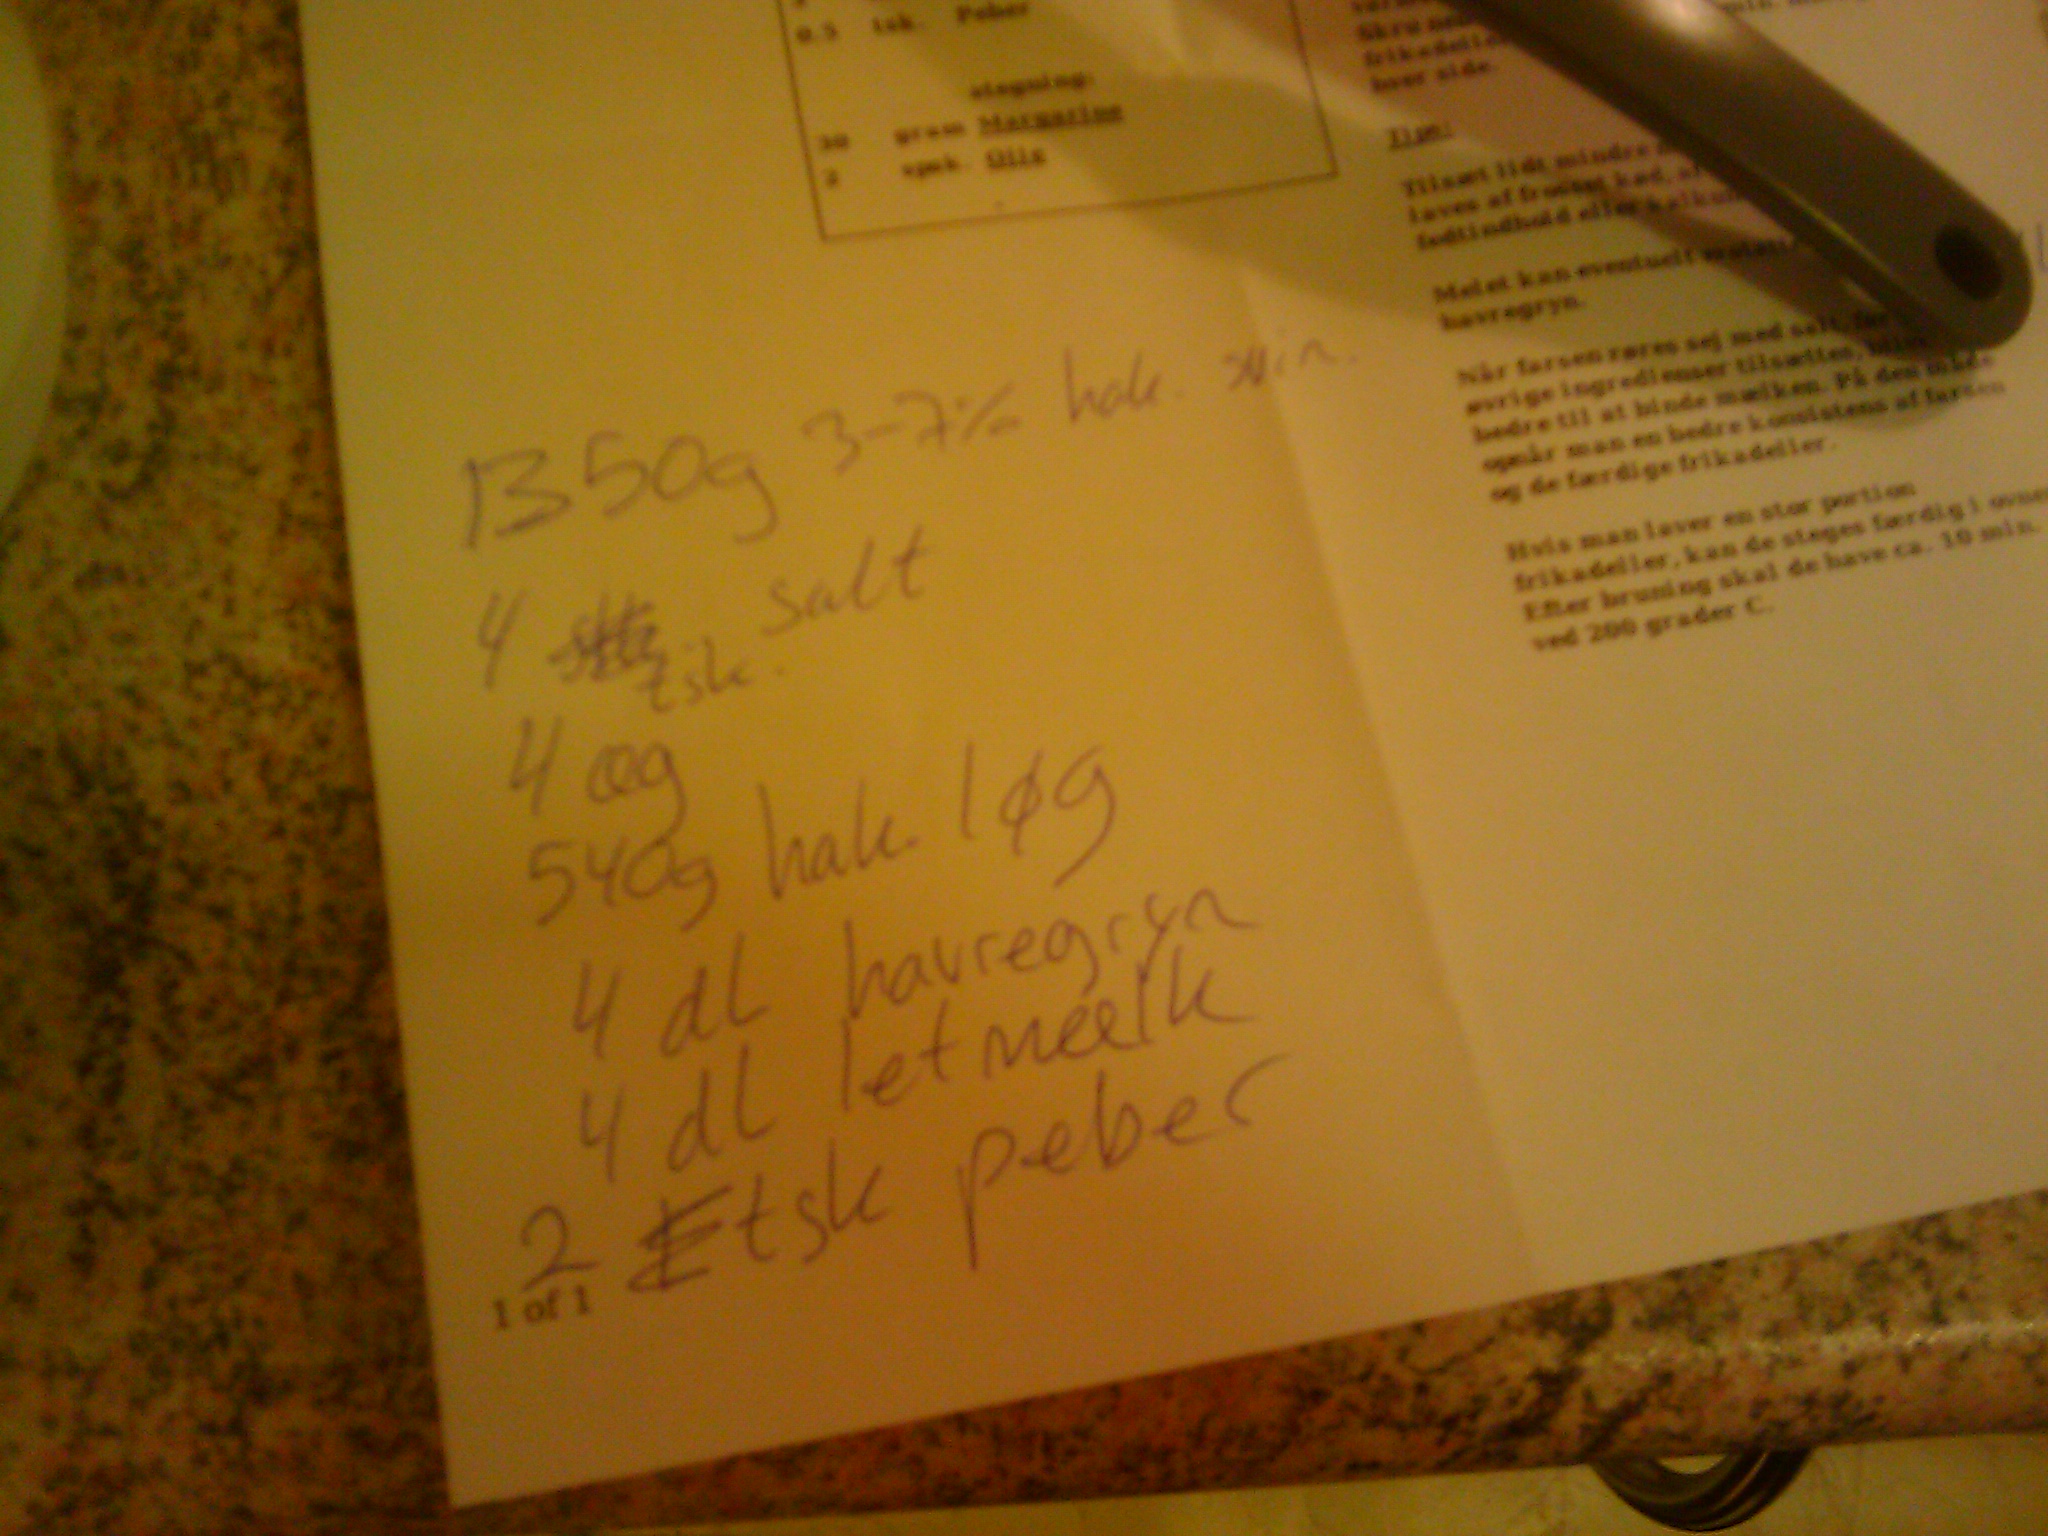 0.5 tsk. Peber
stegning:
30 gram Margarine
2 spsk. Olie
min.
Skru ned
frikadelle
hver side.
Tips:
Tilsæt lidt mindre
laves af frosset kød,
fedtindhold eller kalku
Melet kan eventuelt
havregryn.
Når farsen røres sej med salt, før
øvrige ingredienser tilsættes,
bedre til at binde mælken. På den måde
opnår man en bedre konsistens af farsen
og de færdige frikadeller.
Hvis man laver en stor portion
frikadeller, kan de steges færdig i ovnen
Efter bruning skal de have ca. 10 min.
ved 200 grader C.
1350g 3-7% hak. svin.
4 tsk. salt
4 æg
540g hak. løg
4 dl havregryn
4 dl letmælk
2 tsk peber
1 of 1